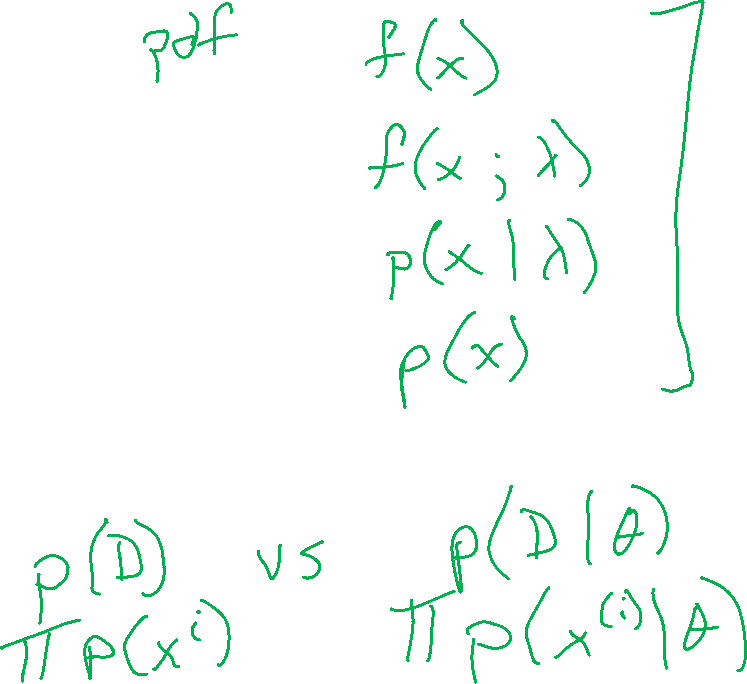 pdf f(x)
f(x ; λ)
p(x | λ)
p(x)
p(D) vs p(D | θ)
∏ p(x^i) ∏ p(x^(i) | θ)